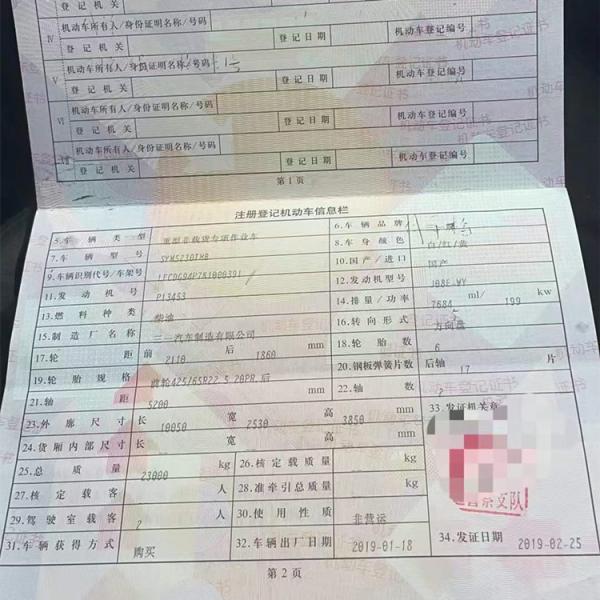 IV 机动车所有人/身份证明名称/号码
登记机关 登记日期 机动车登记编号
V 机动车所有人/身份证明名称/号码
登记机关 登记日期 机动车登记编号
VI 机动车所有人/身份证明名称/号码
登记机关 登记日期 机动车登记编号
VII 机动车所有人/身份证明名称/号码
登记机关 登记日期 机动车登记编号
第1页
注册登记机动车信息栏
5.车辆类型 重型非载货专项作业车 6.车辆品牌
7.车辆型号 8.车身颜色 白/红/黄
9.车辆识别代号/车架号 10.国产/进口 国产
11.发动机号 P13453 12.发动机型号 J08E-WY
13.燃料种类 柴油 14.排量/功率 7684 ml/ 199 kw
15.制造厂名称 三一汽车制造有限公司 16.转向形式 方向盘
17.轮距 前 2110 后 1860 mm 18.轮胎数 6
19.轮胎规格 20.钢板弹簧片数 后轴 17 片
21.轴距 5200 mm 22.轴数 2
23.外廓尺寸 长 10050 宽 2530 高 3850 mm 33.发证机关章
24.货厢内部尺寸 长 宽 高 mm
25.总质量 23000 kg 26.核定载质量 kg
27.核定载客 人 28.准牵引总质量 kg
29.驾驶室载客 2 人 30.使用性质 非营运
31.车辆获得方式 购买 32.车辆出厂日期 2019-01-18 34.发证日期 2019-02-25
第2页